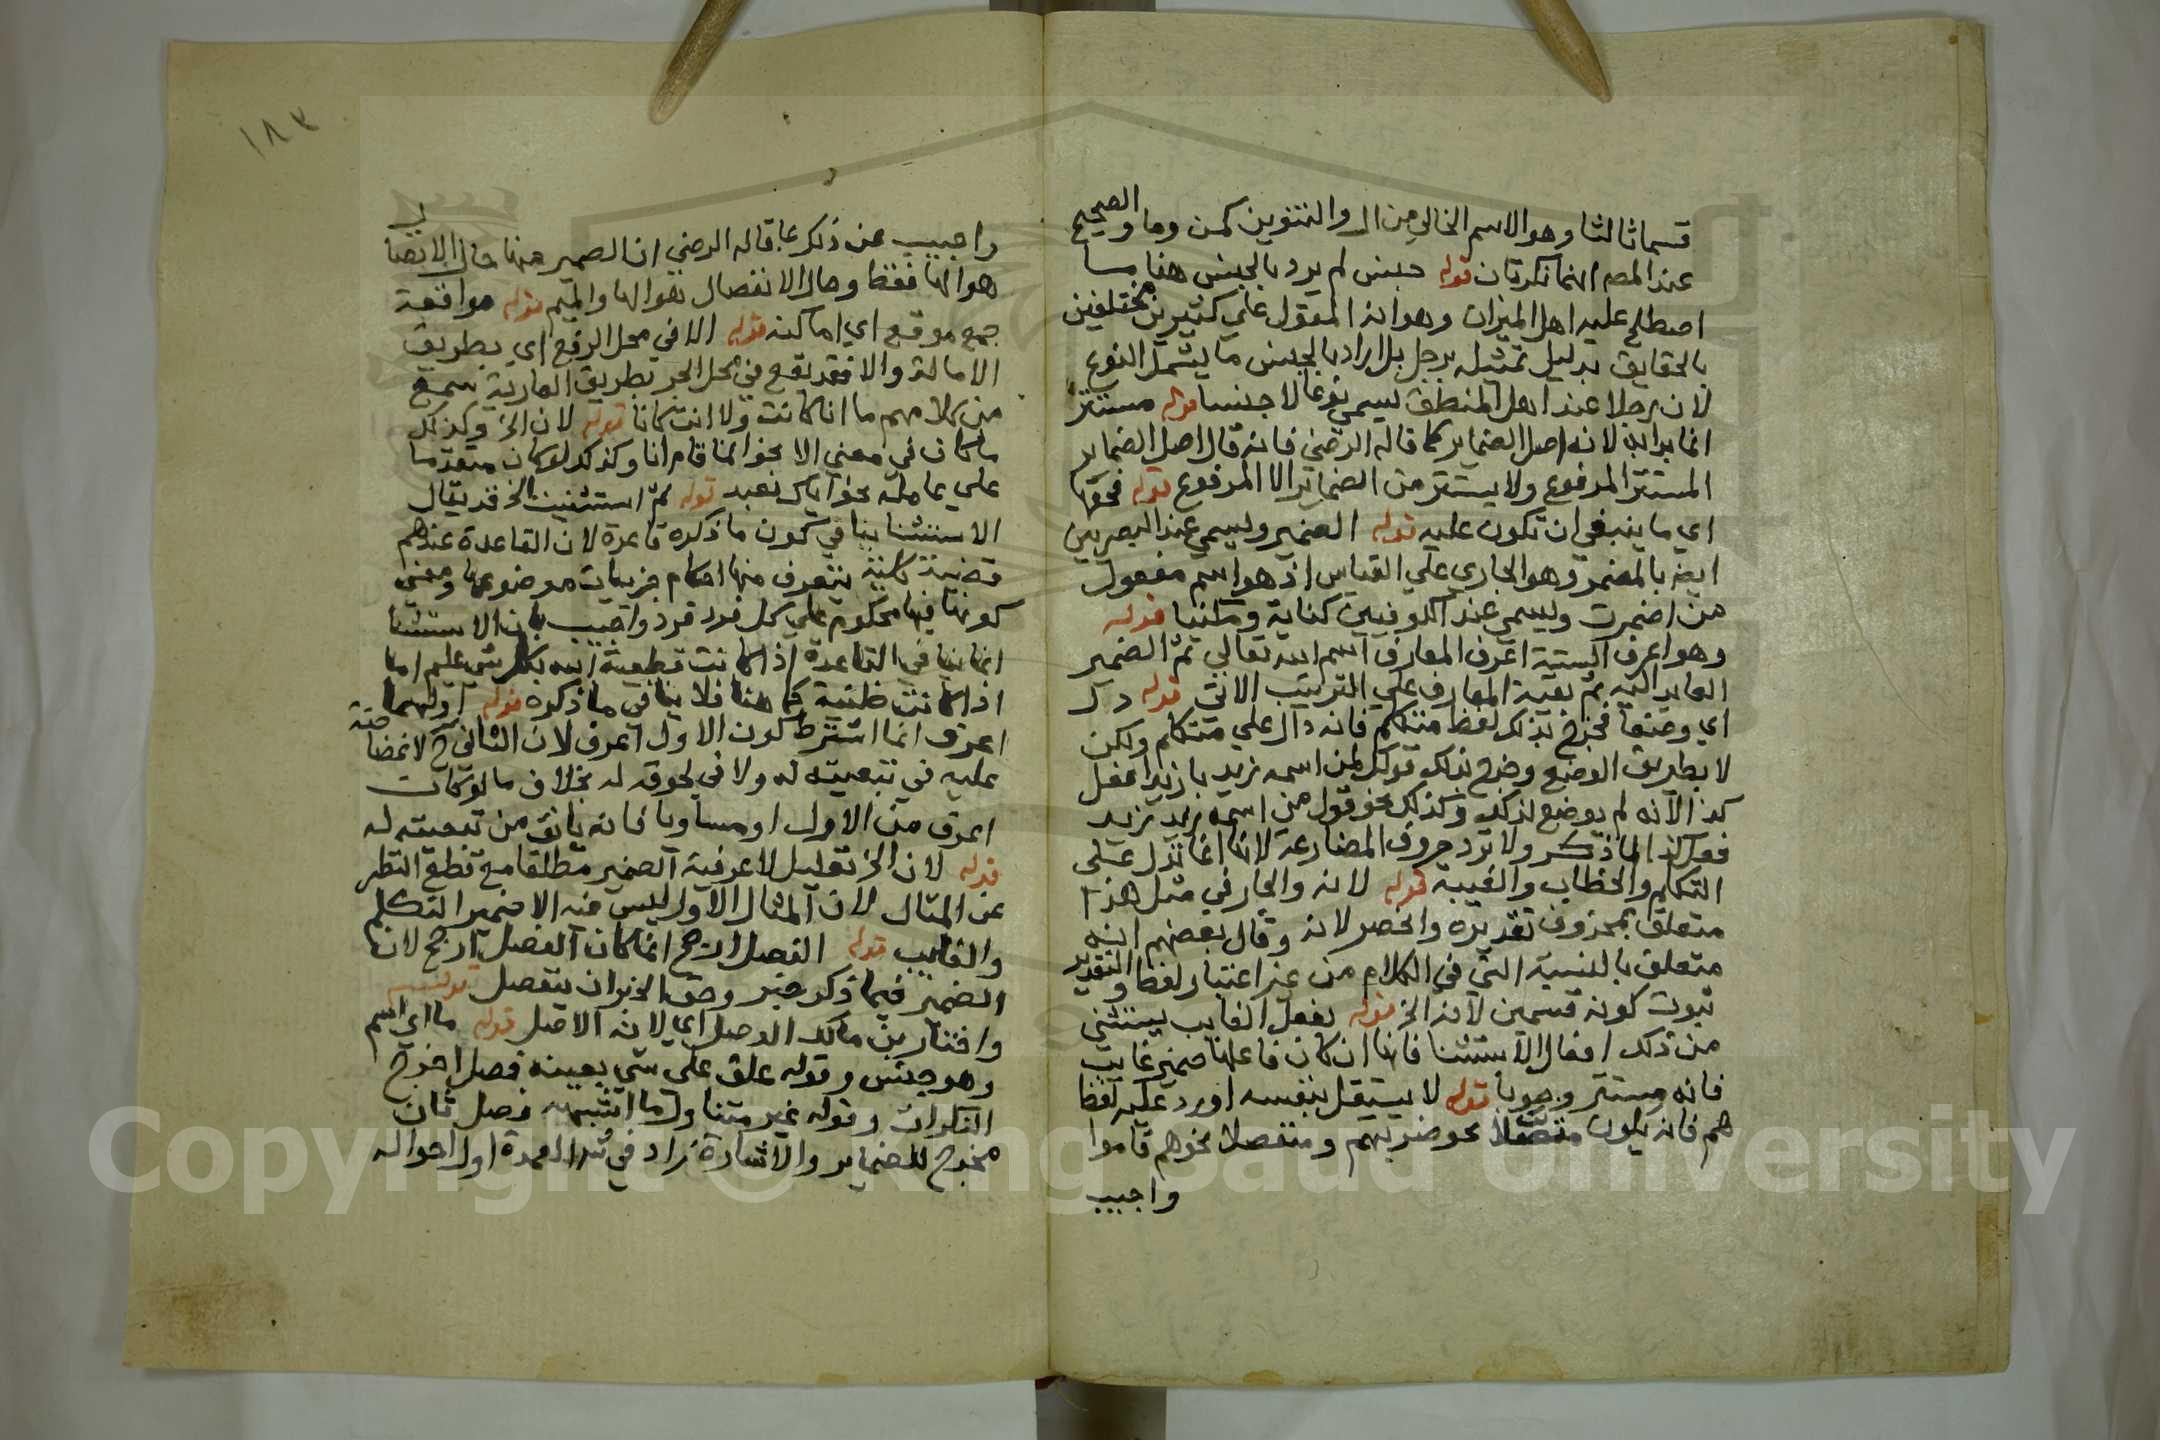 قسما ثالثا وهو الاسم الخالي من ال والتنوين كمن وما والصحيح
عند المصـ انهما نكرتان قوله جنس لم يرد بالجنس هنا ما
اصطلح عليه اهل الميزان وهو انه المقول علي كثيرين مختلفين
بالحقايق بدليل تمثيله برجل بل اراد بالجنس ما يشمل النوع
لان رجلا عند اهل المنطق يسمي نوعا لا جنسا قوله مستترا
انما بدا به لانه اصل الضماير كما قاله الرضي فانه قال اصل الضماير
المستتر المرفوع ولا يستتر من الضماير الا المرفوع قوله فحقها
اي ما ينبغي ان تكون عليه قوله الضمير ويسمي عند البصريين
ايضا بالمضمر وهو الجاري علي القياس اذ هو اسم مفعول
من اضمرت ويسمي عند الكوفيين كناية ومكنيا قوله
وهو اعرف الستة اعرف المعارف اسم الله تعالي ثم الضمير
العايد اليه ثم بقية المعارف علي الترتيب الاتي قوله دل
اي وضعا فخرج بذلك لفظ متكلم فانه دال علي متكلم ولكن
لا بطريق الوضع وخرج بذلك قولك لمن اسمه زيد يا زيد افعل
كذا لانه لم يوضع لذلك وكذلك نحو قول من اسمه زيد زيد
فعل كذا لما ذكر ولا ترد حروف المضارعة لانها انما تدل علي
التكلم والخطاب والغيبة قوله لانه والجار في مثل هذا
متعلق بمحذوف تقديره وانحصر لانه وقال بعضهم انه
متعلق بالنسبة التي في الكلام من غير اعتبار لفظ والتقدير
ثبوت كونه قسمين لانه الخ قوله بفعل الغايب يستثني
من ذلك افعال الاستثنا فانها ان كان فاعلها ضمير غايب
فانه مستتر وجوبا قوله لا يستقل بنفسه اورد عليه لفظ
هم فانه يكون متصلا نحو ضربهم ومنفصلا نحو هم قاموا
واجيب
١٨٣
واجيب عن ذلك بما قاله الرضي ان الضمير منها حال الاتصال
هو الها فقط وحال الانفصال هو الها والميم قوله مواقعة
جمع موقع اي اماكنه قوله الا في محل الرفع اي بطريق
الاصالة والا فقد تقع في محل الجر بطريق العارية سمع
من كلامهم ما انا كانت ولا انت كانا قوله لان الخ وكذلك
ما كان في معني الا نحو انما قام انا وكذلك لو كان متقدما
علي عامله نحو اياك نعبد قوله ثم استثنيت الخ قد يقال
الاستثنا ينافي كون ما ذكره قاعدة لان القاعدة عندهم
قضية كلية يتعرف منها احكام جزييات موضوعها ومعني
كونها فيها محكوم علي كل فرد فرد واجيب بان الاستثنا
انما ينافي القاعدة اذا كانت قطعية اما
اذا كانت ظنية كما هنا فلا ينافي ما ذكره قوله اولهما
اعرف انما اشترط كون الاول اعرف لان الثاني ح لا غضاضة
عليه في تبعيته له ولا في لحوقه له بخلاف ما لو كانت
اعرف من الاول او مساويا فانه يانف من تبعيته له
قوله لان الخ تعليل لاعرفية الضمير مطلقا مع قطع النظر
عن المثال لان المثال الاول ليس فيه الا ضمير التكلم
والغايب قوله الفصل ارجح انما كان الفصل ارجح لان
الضمير فيما ذكر خبر وحق الخبر ان ينفصل قوله
واختار بن مالك الوصل اي لانه الاصل قوله ما اي اسم
وهو جنس وقوله علق علي شي بعينه فصل اخرج
النكرات وقوله غير متناول ما اشبهه فصل ثان
مخرج للضماير والاشارة زاد في شرح العمدة اول احواله